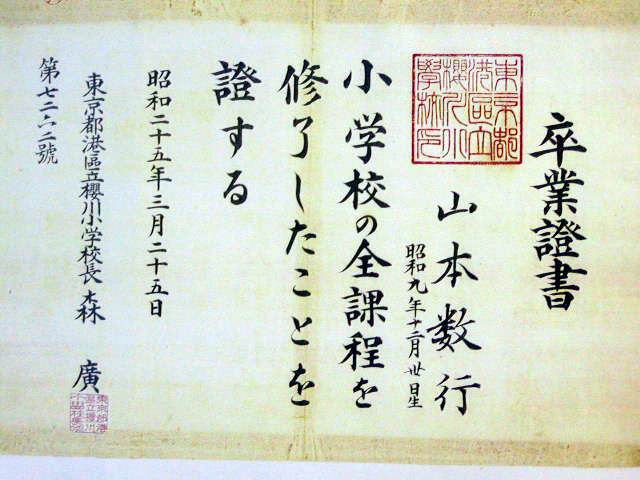 卒業證書
東京都
港區立
櫻川小
學校印
山本数行
昭和九年十二月卅日生
小学校の全課程を
修了したことを
證する
昭和二十五年三月二十五日
東京都港區立櫻川小学校長 森 廣
第七二六二號